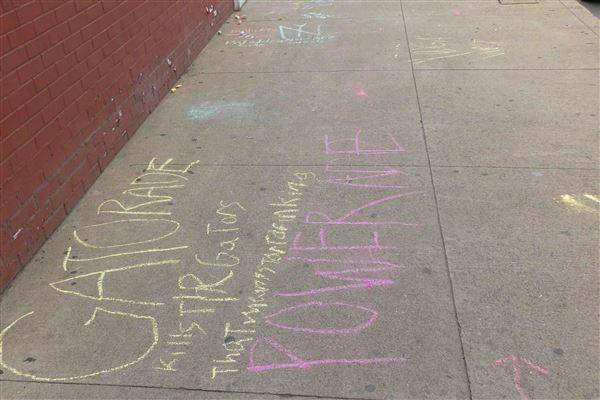 GATORADE
kills THE GaTors
ThaT means STarT drinking
POWERADE